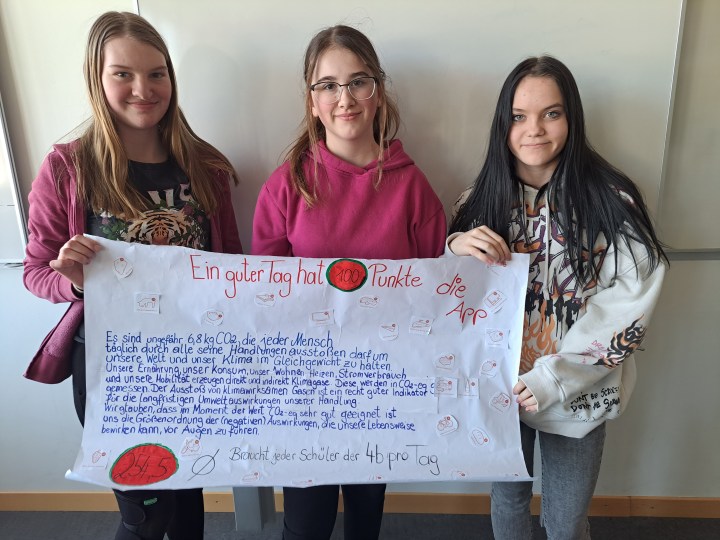 Ein guter Tag hat 100 Punkte die App
Es sind ungefähr 6,8 kg CO2, die jeder Mensch
täglich durch alle seine Handlungen ausstoßen darf um
unsere Welt und unser Klima im Gleichgewicht zu halten.
Unsere Ernährung, unser Konsum, unser Wohnen Heizen, Stromverbrauch
und unsere Mobilität erzeugen direkt und indirekt Klimagase. Diese werden in CO2-eq
gemessen. Der Ausstoß von klimawirksamen Gasen ist ein recht guter Indikator
für die langfristigen Umweltauswirkungen unserer Handlung.
Wir glauben, dass im Moment der Wert CO2-eq sehr gut geeignet ist
uns die Größenordnung der (negativen) Auswirkungen, die unsere Lebensweise
bewirken kann, vor Augen zu führen.
Ø Braucht jeder Schüler der 4b pro Tag